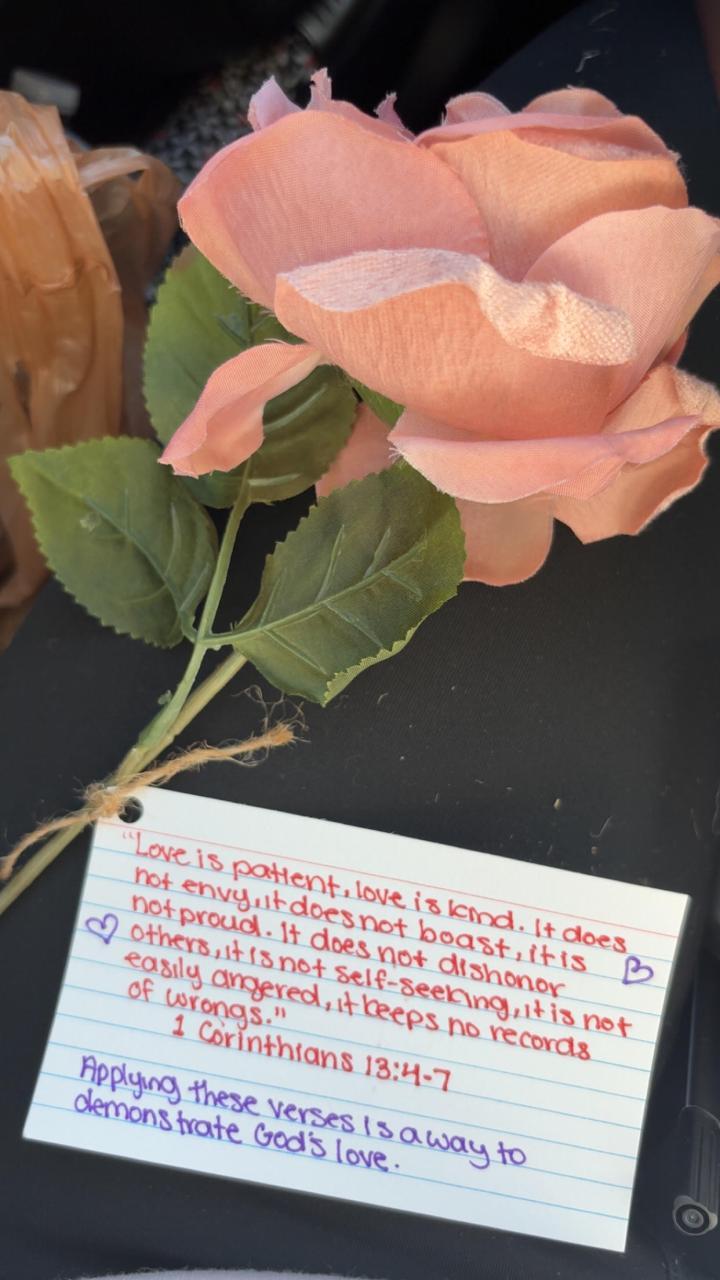 "Love is patient, love is kind. It does
not envy, it does not boast, it is
not proud. It does not dishonor
others, it is not self-seeking, it is not
easily angered, it keeps no records
of wrongs."
1 Corinthians 13:4-7
Applying these verses is a way to
demonstrate God's love.